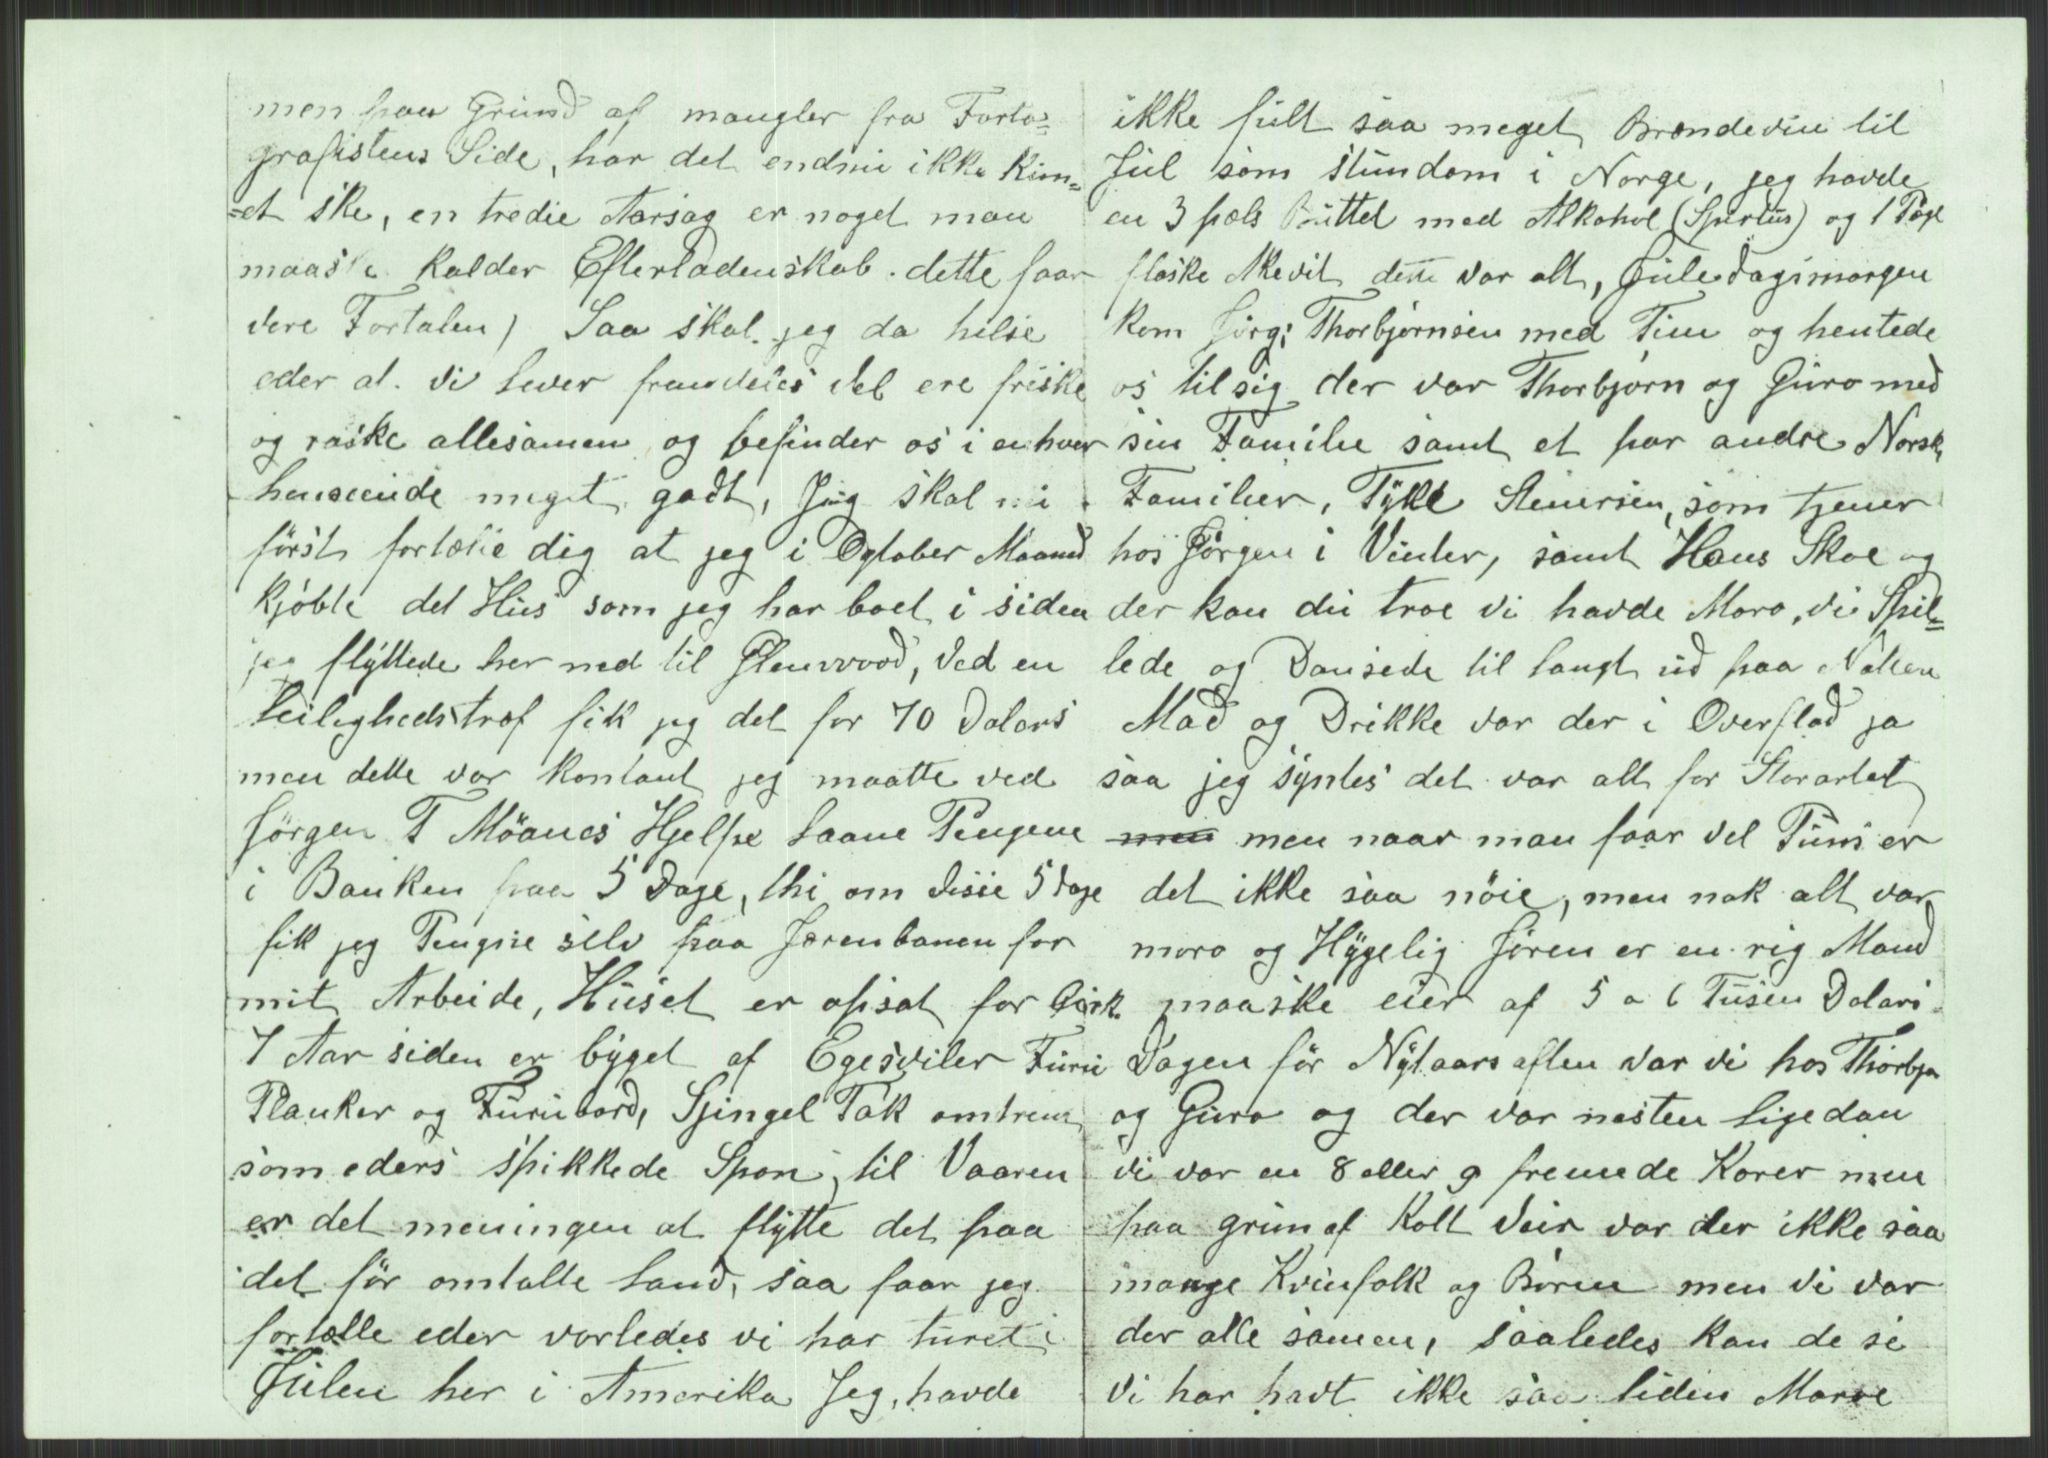 men paa Grund af mangler fra Forto=
grafistens Side, har det endnu ikke Kun=
=et ske, en tredie Aarsag er noget man
maaske kalder Efterladenskab. dette faar
vere Fortalen) Saa skal jeg da hilse
eder at vi lever fremdeles vel ere friske
og raske allesamen og befinder os i enhver
henseende meget godt, Jeg skal nu
först fortælle dig at jeg i Ogtober Maaned
kjöbte det Hus som jeg har boet i siden
jeg flyttede her ned til Glenwood, Ved en
Leilighedstraf fik jeg det for 70 Dalars
men dette var kontant jeg maatte ved
Jörgen T Möanes Hjelpe laane Pengene
i Banken paa 5 Dage, thi om disse 5 dage
fik jeg Pengne selv paa Jærenbanen for
mit Arbeide, Huset er opsat for Cirk.
7 Aar siden er byget af Egesviler Furu
Planker og Furubord, Sjingel Tak omtrent
som eders spikkede Spon, til Vaaren
er det meningen at flytte det paa
det för omtalte Land, saa faar jeg
fortælle eder vorledes vi har turet i
Julen her i Amerika Jeg, havde
ikke fult saa meget Brændeviin til
Jul som stundom i Norge, jeg havde
en 3 pæls Buttel med Alkohol (Spirtus) og 1 Pægl
flaske Akevit dette var alt, Juledagsmorgen
kom Jörg; Thorbjörnsen med Tim og hentede
os til sig der var Thorbjörn og Guro med
sin Familie samt et par andre Norsk,
Familier, Tykle Steinersen, som tjener
hos Jörgen i Vinter, samt Hans Skoe og
der kan du troe vi havde Moro, vi Spil=
lede og Dansede til langt ud paa Natten
Mad og Drikke var der i Overflod ja
saa jeg syntes det var alt for Storartet
men men naar man faar vel Puns er
det ikke saa nöie, men nok alt var
moro og Hygelig Jören er en rig Mand
maaske eier af 5 a 6 Tusen Dalars
Dagen för Nytaarsaften var vi hos Thorbjø
og Guro og der var nesten ligedan
vi var en 8 eller 9 fremede Karer men
paa grun af Kolt Veir var der ikke saa
mange Kvinfolk og Børen men vi var
der alle samen, saaledes kan de se
vi har havt ikke saa liden Moroe